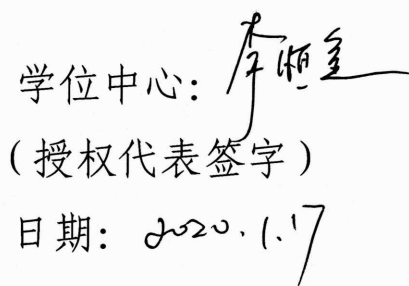 学位中心：李恒金
（授权代表签字）
日期：2020.1.17